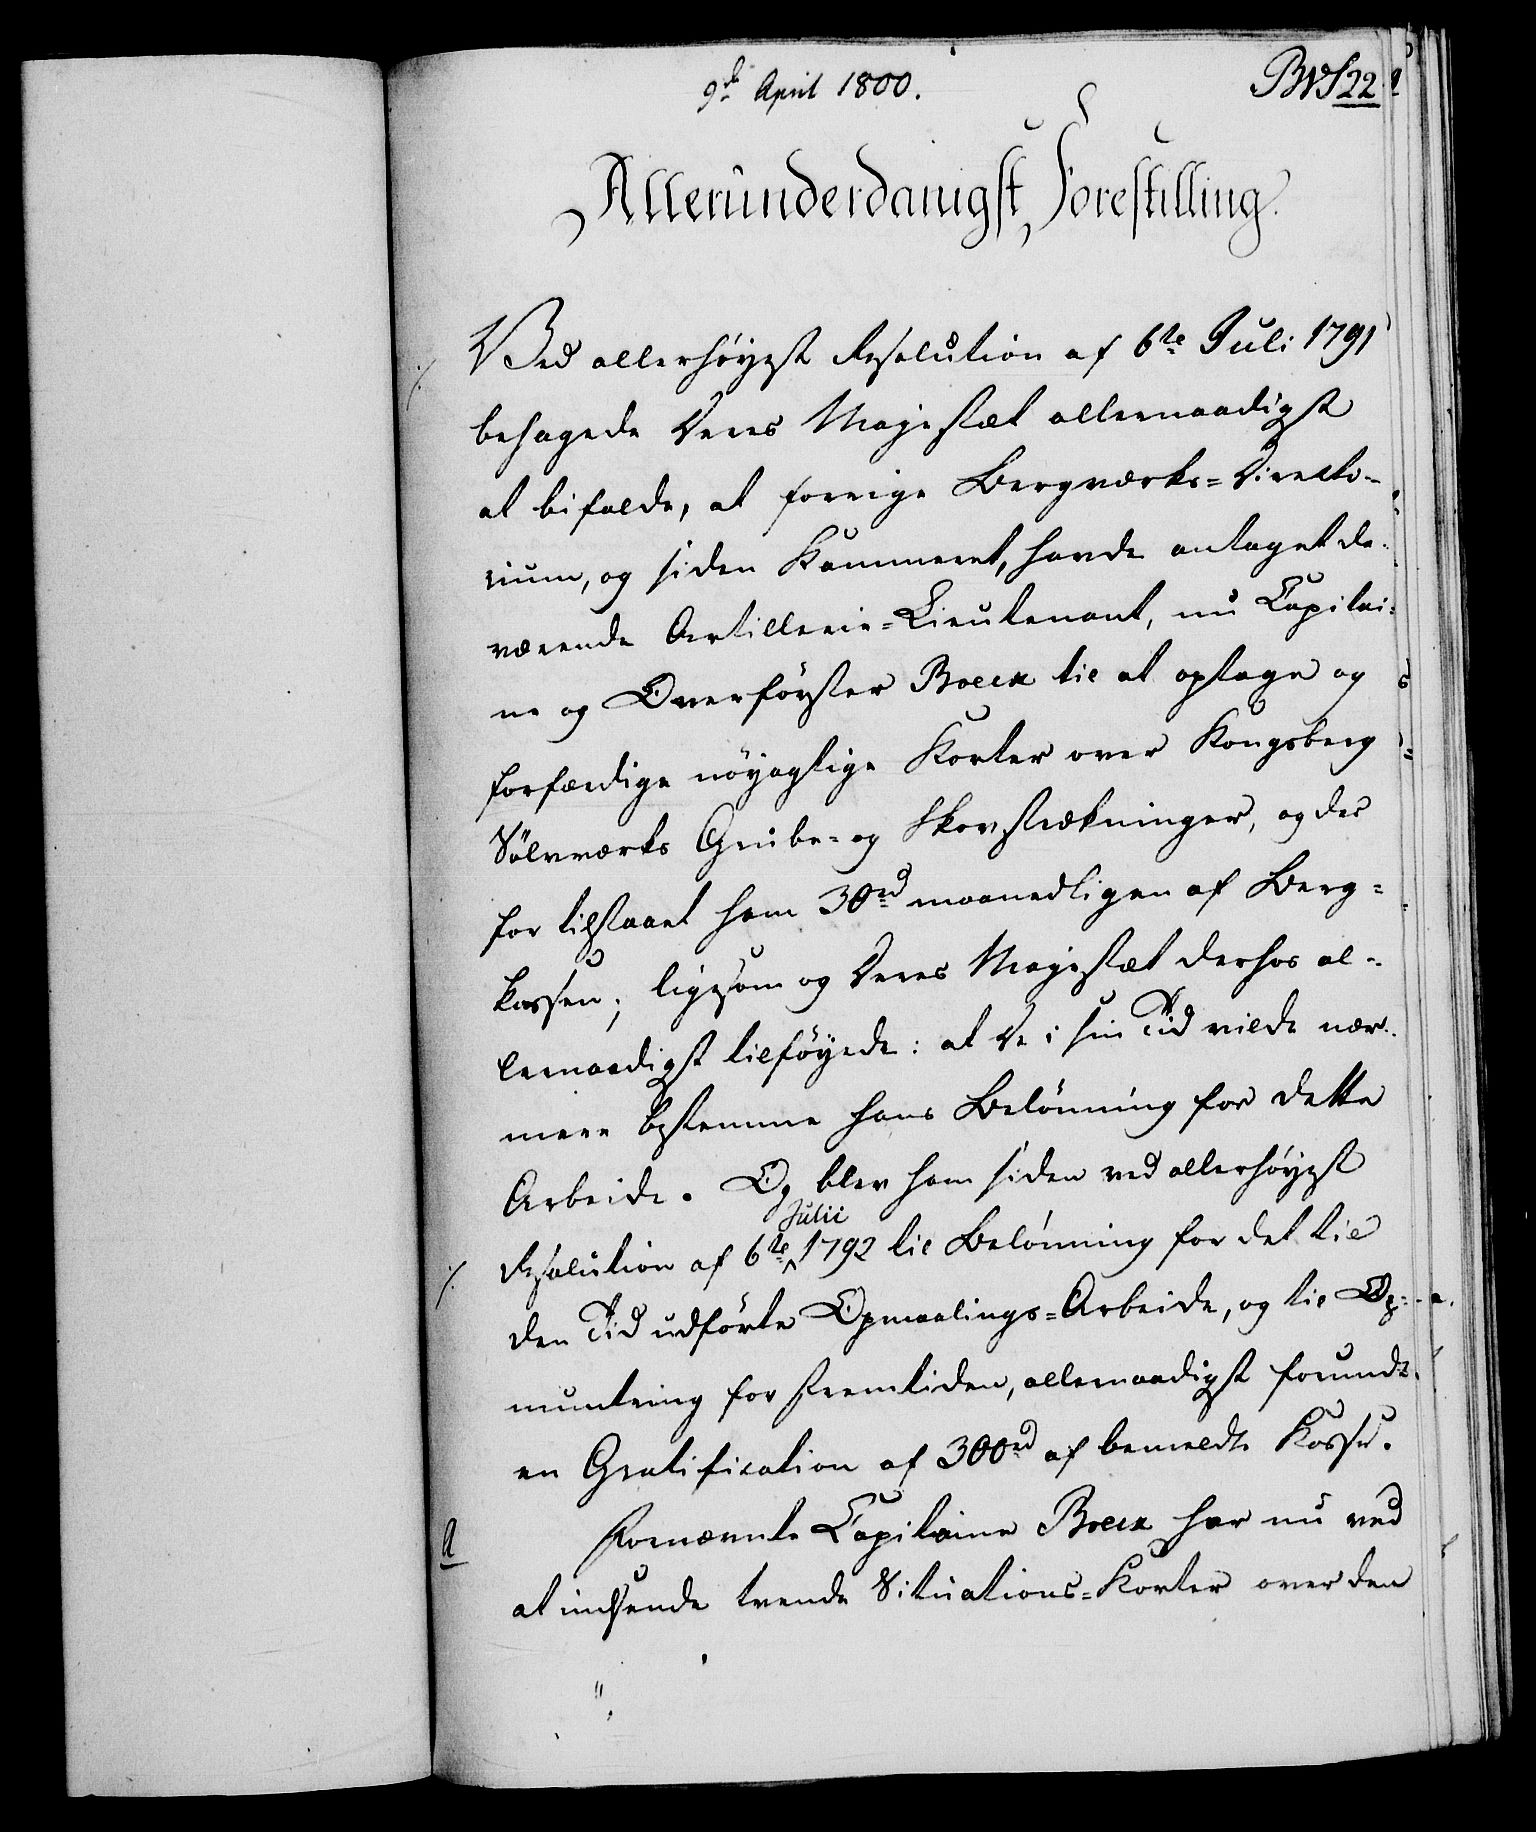 9de April 1800.
BWS 22
Allerunderdanigst Forestilling.
Ved allerhøyest Resolution af 6te Juli 1791
behagede Deres Majestæt allernaadigst
at bifalde, at forrige Bergværks=Directo-
rium, og siden Kammeret, havde antaget da-
værende Artillerie=Lieutenant, nu Capitai-
ne og Overførster Boeck til at optage og
forfærdige nøyagtige Korter over Kongsberg
Sølvværks Grube- og Skovstrækninger, og der
for tilstaaet ham 30rd maanedligen af Berg=
kassen; ligesom og Deres Majestæt derhos al-
lernaadigst tilføyede: at De i sin Tid vilde nær-
mere bestemme hans Belønning for dette
Arbeide. Og blev ham siden ved allerhøyest
Resolution af 6te Julii 1792 til Belønning for det til
den Tid udførte Opmaalings=Arbeide, og til Op-
muntring for Fremtiden, allernaadigst forundt
en Gratification af 300rd af bemeldte Kasse.
A
Fornævnte Capitaine Boeck har nu ved
at indsende trende Situations=Korter over den